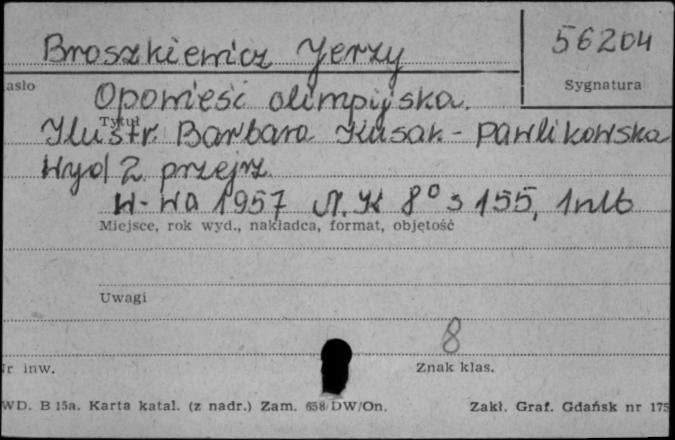 Broszkiewicz Jerzy
56204
asło
Sygnatura
Opowieść olimpijska.
Tytuł
Ilustr. Barbara Kusak-Pawlikowska
Wyd 2 przejrz.
W-wa 1957 N.K 8° s 155, 1nlb
Miejsce, rok wyd., nakładca, format, objętość
Uwagi
8
r inw.
Znak klas.
WD. B 15a. Karta katal. (z nadr.) Zam. 658/DW/On.
Zakł. Graf. Gdańsk nr 175